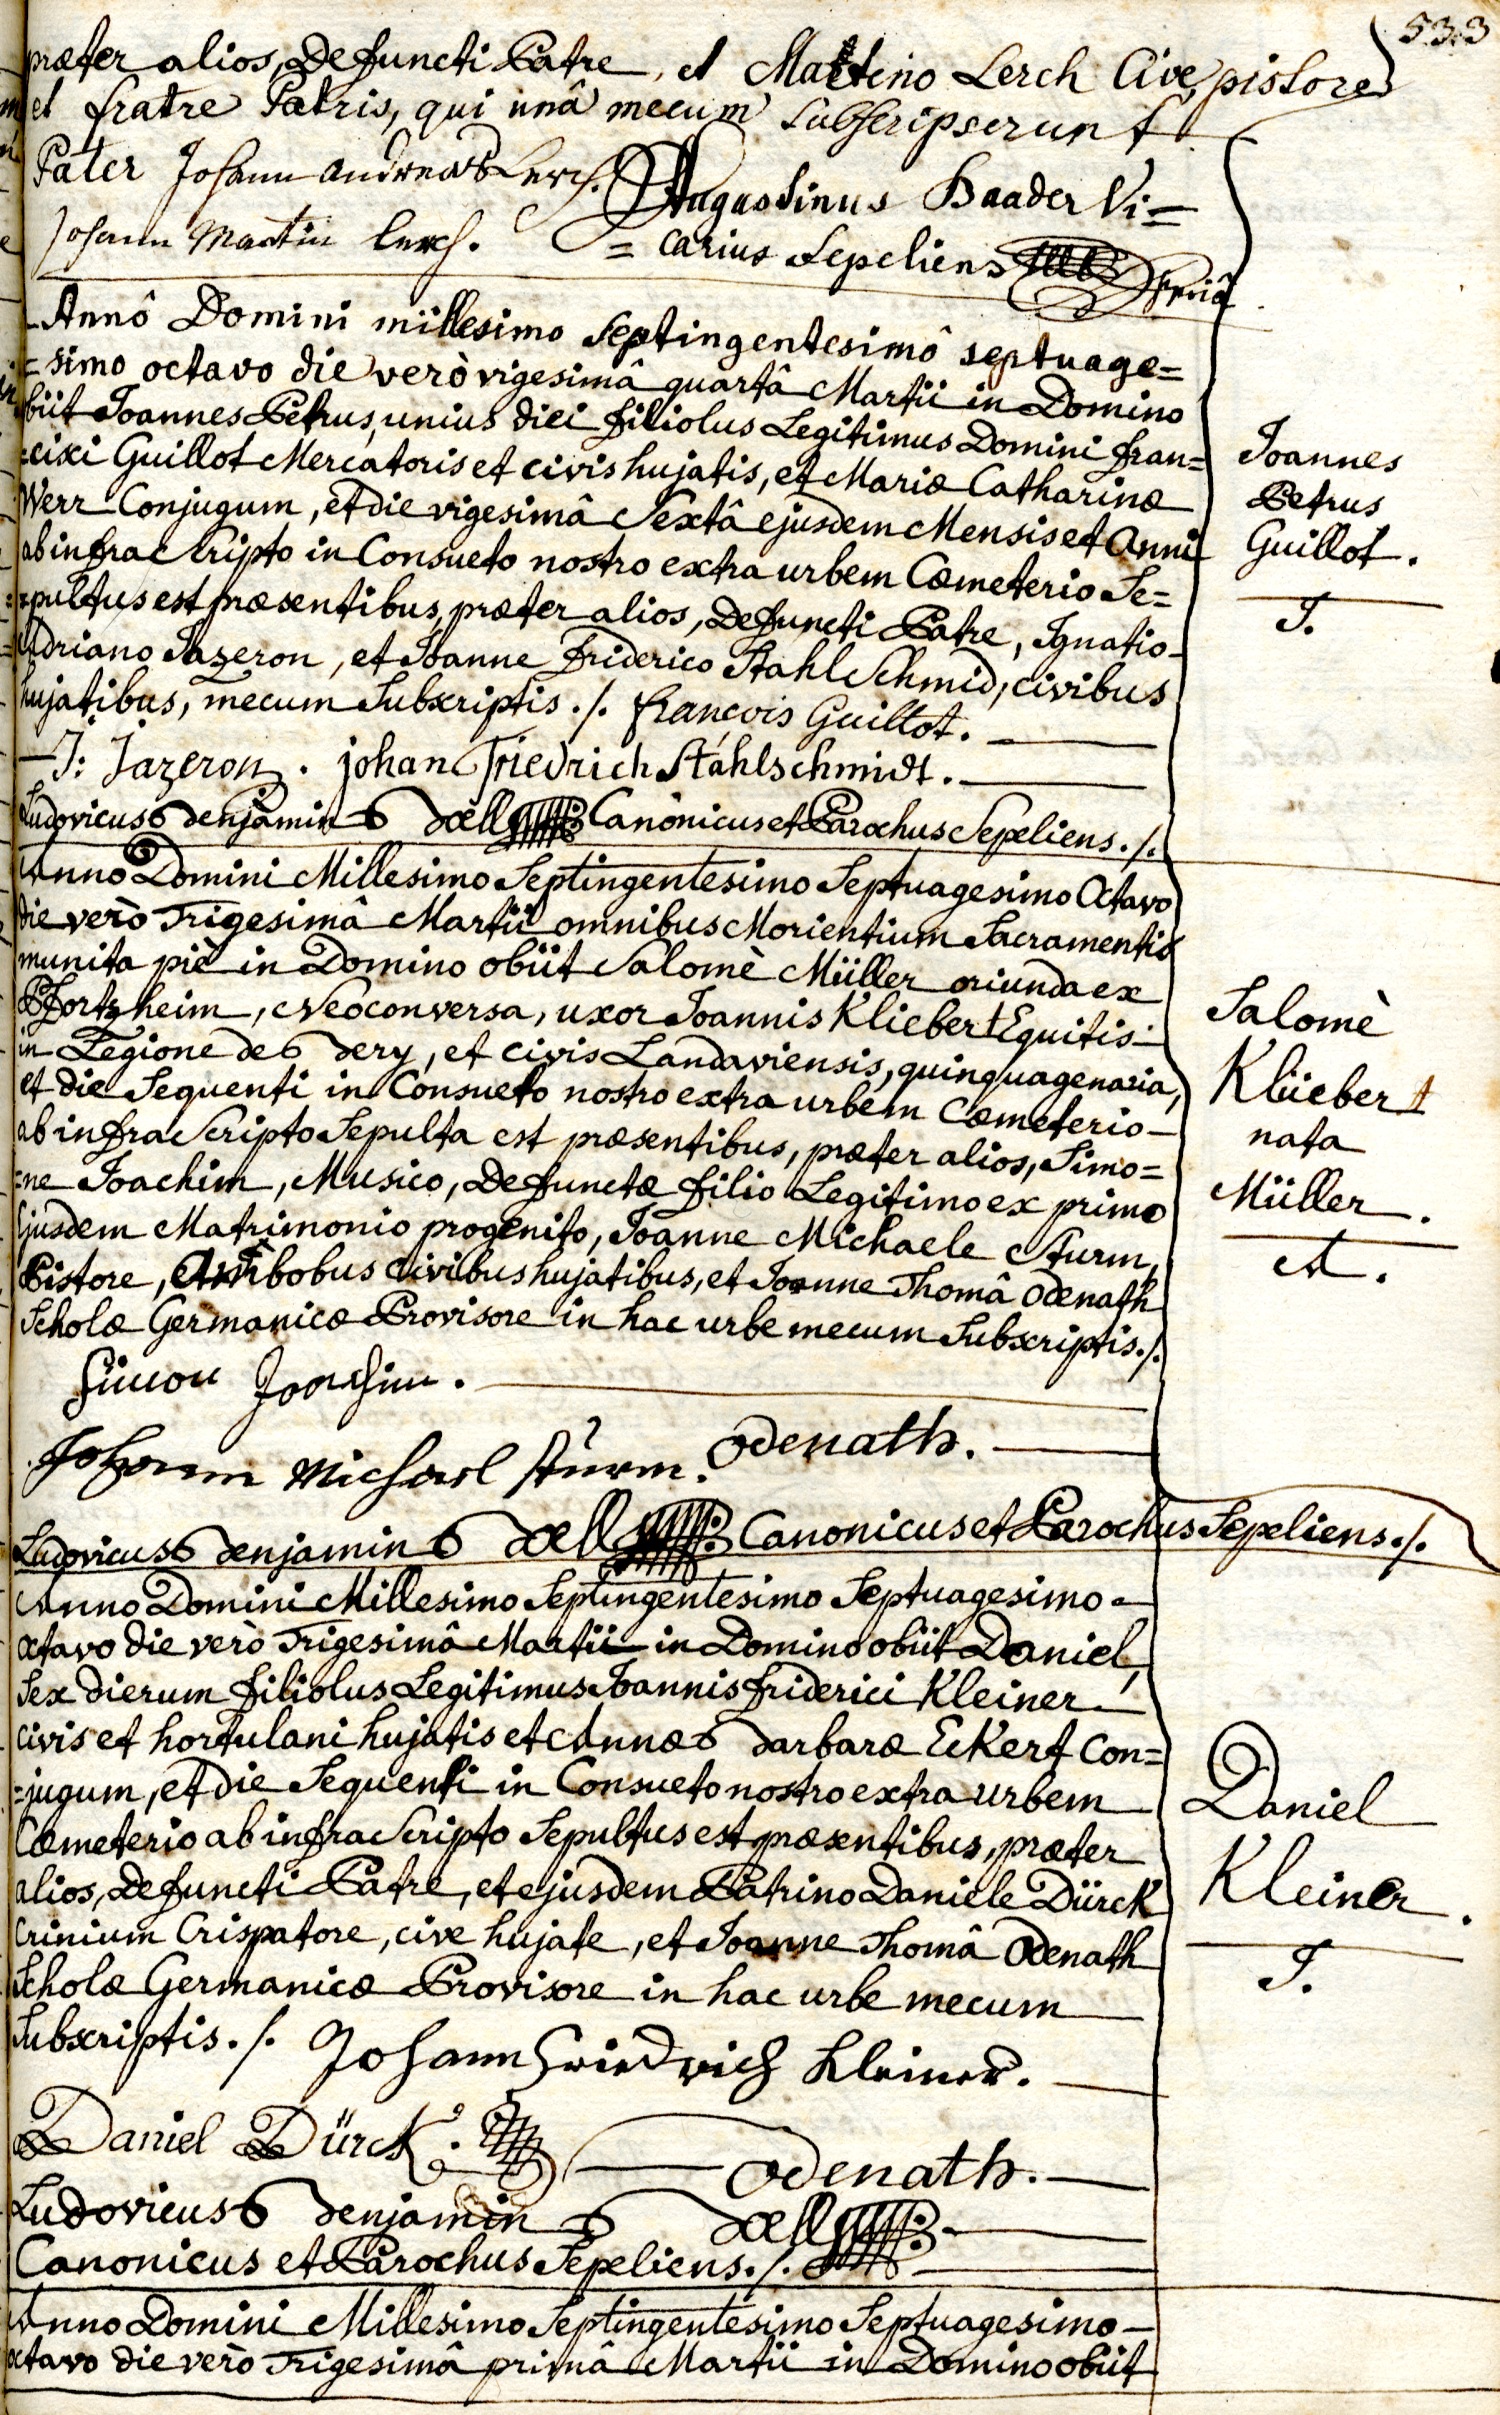 533
præter alios, Defuncti Patre, et Martino Lerch Cive, pistore
et fratre Patris, qui unâ mecum subscripserunt
Pater Johann Andreas Lerch.
Augustinus Baader Vi=
Johann Martin Lerch.
= carius Sepeliens
Annô Domini millesimo Septingentesimô septuage=
=simo octavo die verò vigesimâ quartâ Martii in Domino
obiit Joannes Petrus, unius diei filiolus Legitimus Domini Fran=
=cisci Guillot Mercatoris et civis hujatis, et Mariæ Catharinæ
Werr Conjugum, et die vigesimâ Sextâ ejusdem Mensis et Anni
ab infra Scripto in Consueto nostro extra urbem Cœmeterio Se=
=pultus est præsentibus, præter alios, Defuncti Patre, Ignatio
Adriano Jazeron, et Joanne Friderico Stahl Schmid, civibus
hujatibus, mecum Subscriptis ./. François Guillot.
J: Jazeron. johan Friedrich Stahlschmidt.
Ludovicus Benjamin Bœll Canonicus et Parochus Sepeliens ./.
Joannes
Petrus
Guillot.
J.
Anno Domini Millesimo Septingentesimo Septuagesimo Octavo
die verò Trigesimâ Martii omnibus Morientium Sacramentis
munita piè in Domino obiit Salomè Müller oriunda ex
Pfortzheim, Neoconversa, uxor Joannis Kliebert Equitis
in Legione de Bery, et civis Landaviensis, quinquagenaria,
et die Sequenti in Consueto nostro extra urbem Cœmeterio
ab infra Scripto Sepulta est præsentibus, præter alios, Simo=
=ne Joachim, Musico, Defunctæ filio Legitimo ex primo
Ejusdem Matrimonio progenito, Joanne Michaele Sturm,
Pistore, Ambobus Civibus hujatibus, et Joanne Thomâ Odenath
Scholæ Germanicæ Provisore in hac urbe mecum Subscriptis ./.
Simon Joachim.
Johann Michael Sturm. Odenath.
Ludovicus Benjamin Bœll Canonicus et Parochus Sepeliens ./.
Salomè
Klüebert
nata
Müller.
A.
Anno Domini Millesimo Septingentesimo Septuagesimo
octavo die verò Trigesimâ Martii in Domino obiit Daniel,
Sex dierum filiolus Legitimus Joannis Friderici Kleiner
civis et hortulani hujatis et Annæ Barbaræ Eckert Con=
=jugum, et die Sequenti in Consueto nostro extra urbem
Cœmeterio ab infra Scripto Sepultus est præsentibus, præter
alios, Defuncti Patre, et ejusdem Patrino Daniele Dürck
Crinium Crispatore, cive hujate, et Joanne Thomâ Odenath
Scholæ Germanicæ Provisore in hac urbe mecum
Subscriptis ./. Johann Friedrich Kleiner.
Daniel Dürck. Odenath.
Ludovicus Benjamin Bœll
Canonicus et Parochus Sepeliens ./.
Daniel
Kleiner.
J.
Anno Domini Millesimo Septingentesimo Septuagesimo
octavo die verò Trigesimâ primâ Martii in Domino obiit